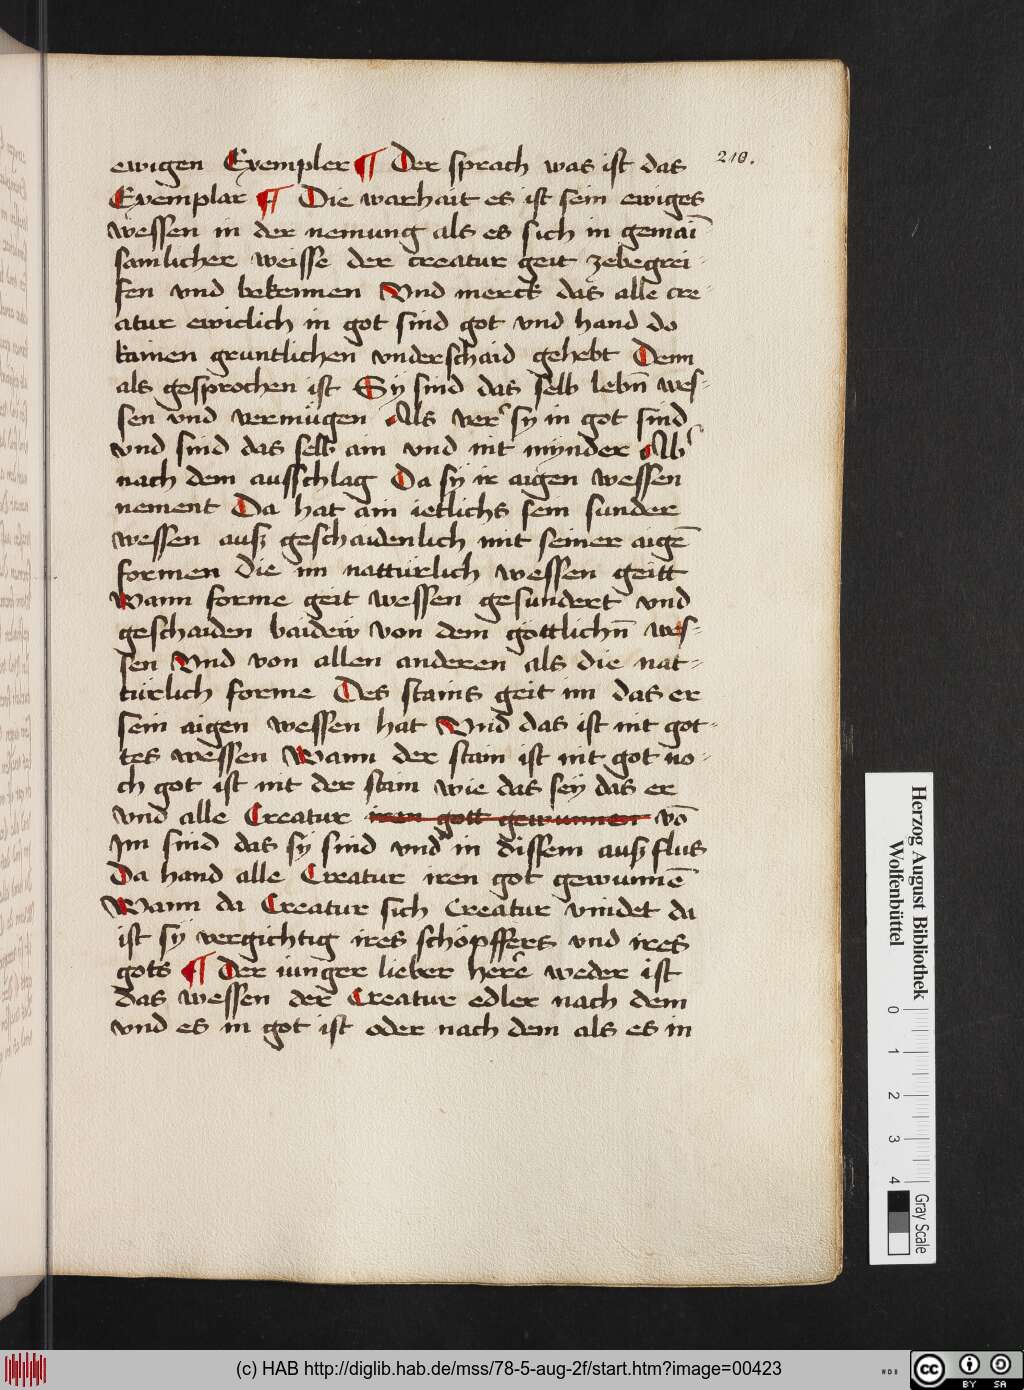 ewigen Exempler ¶ Der sprach was ist das
210.
Exemplar ¶ Die warhait es ist sein ewiges
wessen in der nemung als es sich in gemaī
samlicher weisse der creatur geit zebegrei-
fen vnd bekennen Vnd merck das alle cre-
atur ewiclich in got sind got vnd hand do
kainen gruntlichen vnderschaid gehebt Denn
als gesprochen ist Sÿ sind das selb lebn̄ wes-
sen vnd vermügen Als verʼ sy in got sind
vnd sind das selb ain vnd nit mynder Albʼ
nach dem ausschlag Da sy ir aigen wessen
nement Da hat ain ietlichs sein sunder
wessen ausz geschaidenlich mit seiner aigē
formen die im natturlich wessen geitt
Wann forme geit wessen gesundert vnd
geschaiden baidew von dem gottlichn̄ wes-
sen Vnd von allen anderen als die nat-
türlich forme Des stains geit im das er
sein aigen wessen hat Vnd das ist nit got-
tes wessen Wann der stain ist nit got no-
ch got ist nit der stain wie das sey das er
vnd alle Creatur iren gott gewunnen vō
Im sind das sy sind vnd in dissem ausz flus
Da hand alle Creatur iren got gewunnē
Wann da Creatur sich Creatur vindet da
ist sy vergichtig ires schöpffers vnd ires
gots ¶ Der iunger lieber herē weder ist
das wessen der Creatur edler nach dem
vnd es in got ist oder nach dem als es in
Herzog August Bibliothek
Wolfenbüttel
0 1 2 3 4
Gray Scale
(c) HAB http://diglib.hab.de/mss/78-5-aug-2f/start.htm?image=00423
cc BY SA